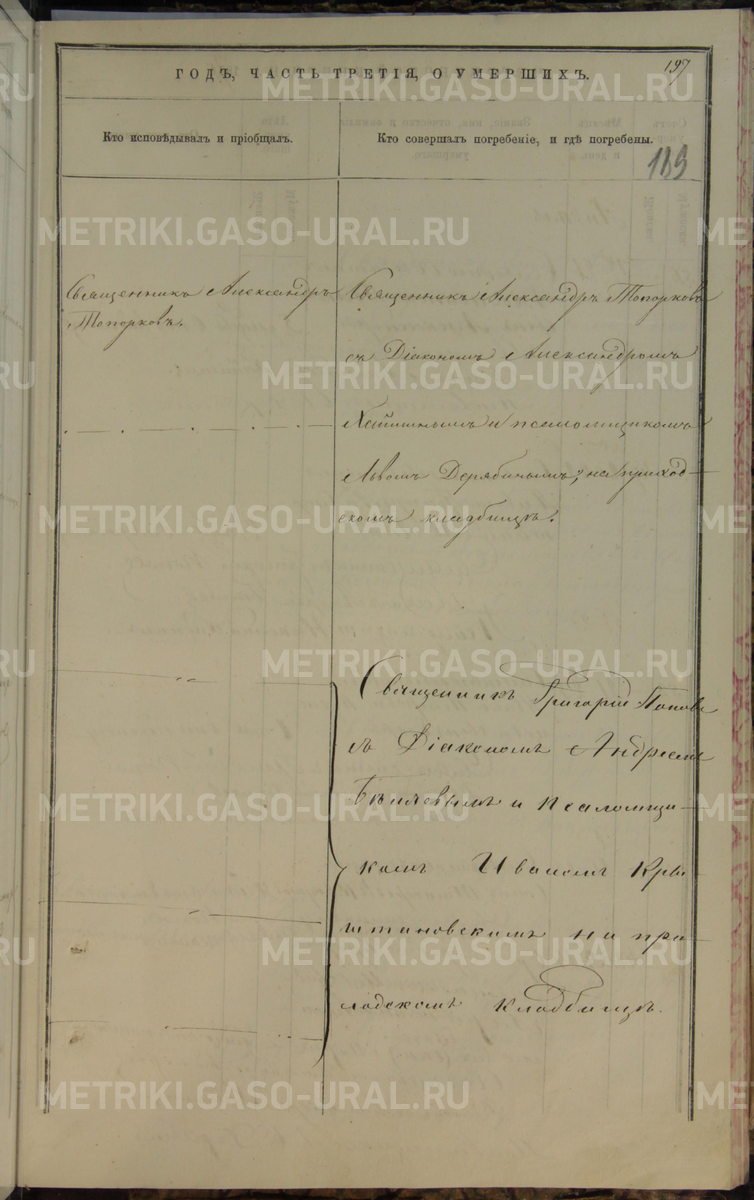 197
ГОДЪ, ЧАСТЬ ТРЕТІЯ, О УМЕРШИХЪ.
Кто исповѣдывалъ и пріобщалъ.
Кто совершалъ погребеніе, и гдѣ погребены.
189
Священникъ Александръ
Топорковъ.
Священникъ Александръ Топорковъ
съ Діакономъ Александромъ
и псаломщикомъ
Львомъ Дерябинымъ, на приход-
скомъ кладбищѣ.
Священникъ Григорій Поповъ
съ Діакономъ Андреемъ
Бѣляевымъ и псаломщи-
комъ Иваномъ Кры-
штановскимъ на при-
ходскомъ кладбищѣ.
METRIKI.GASO-URAL.RU